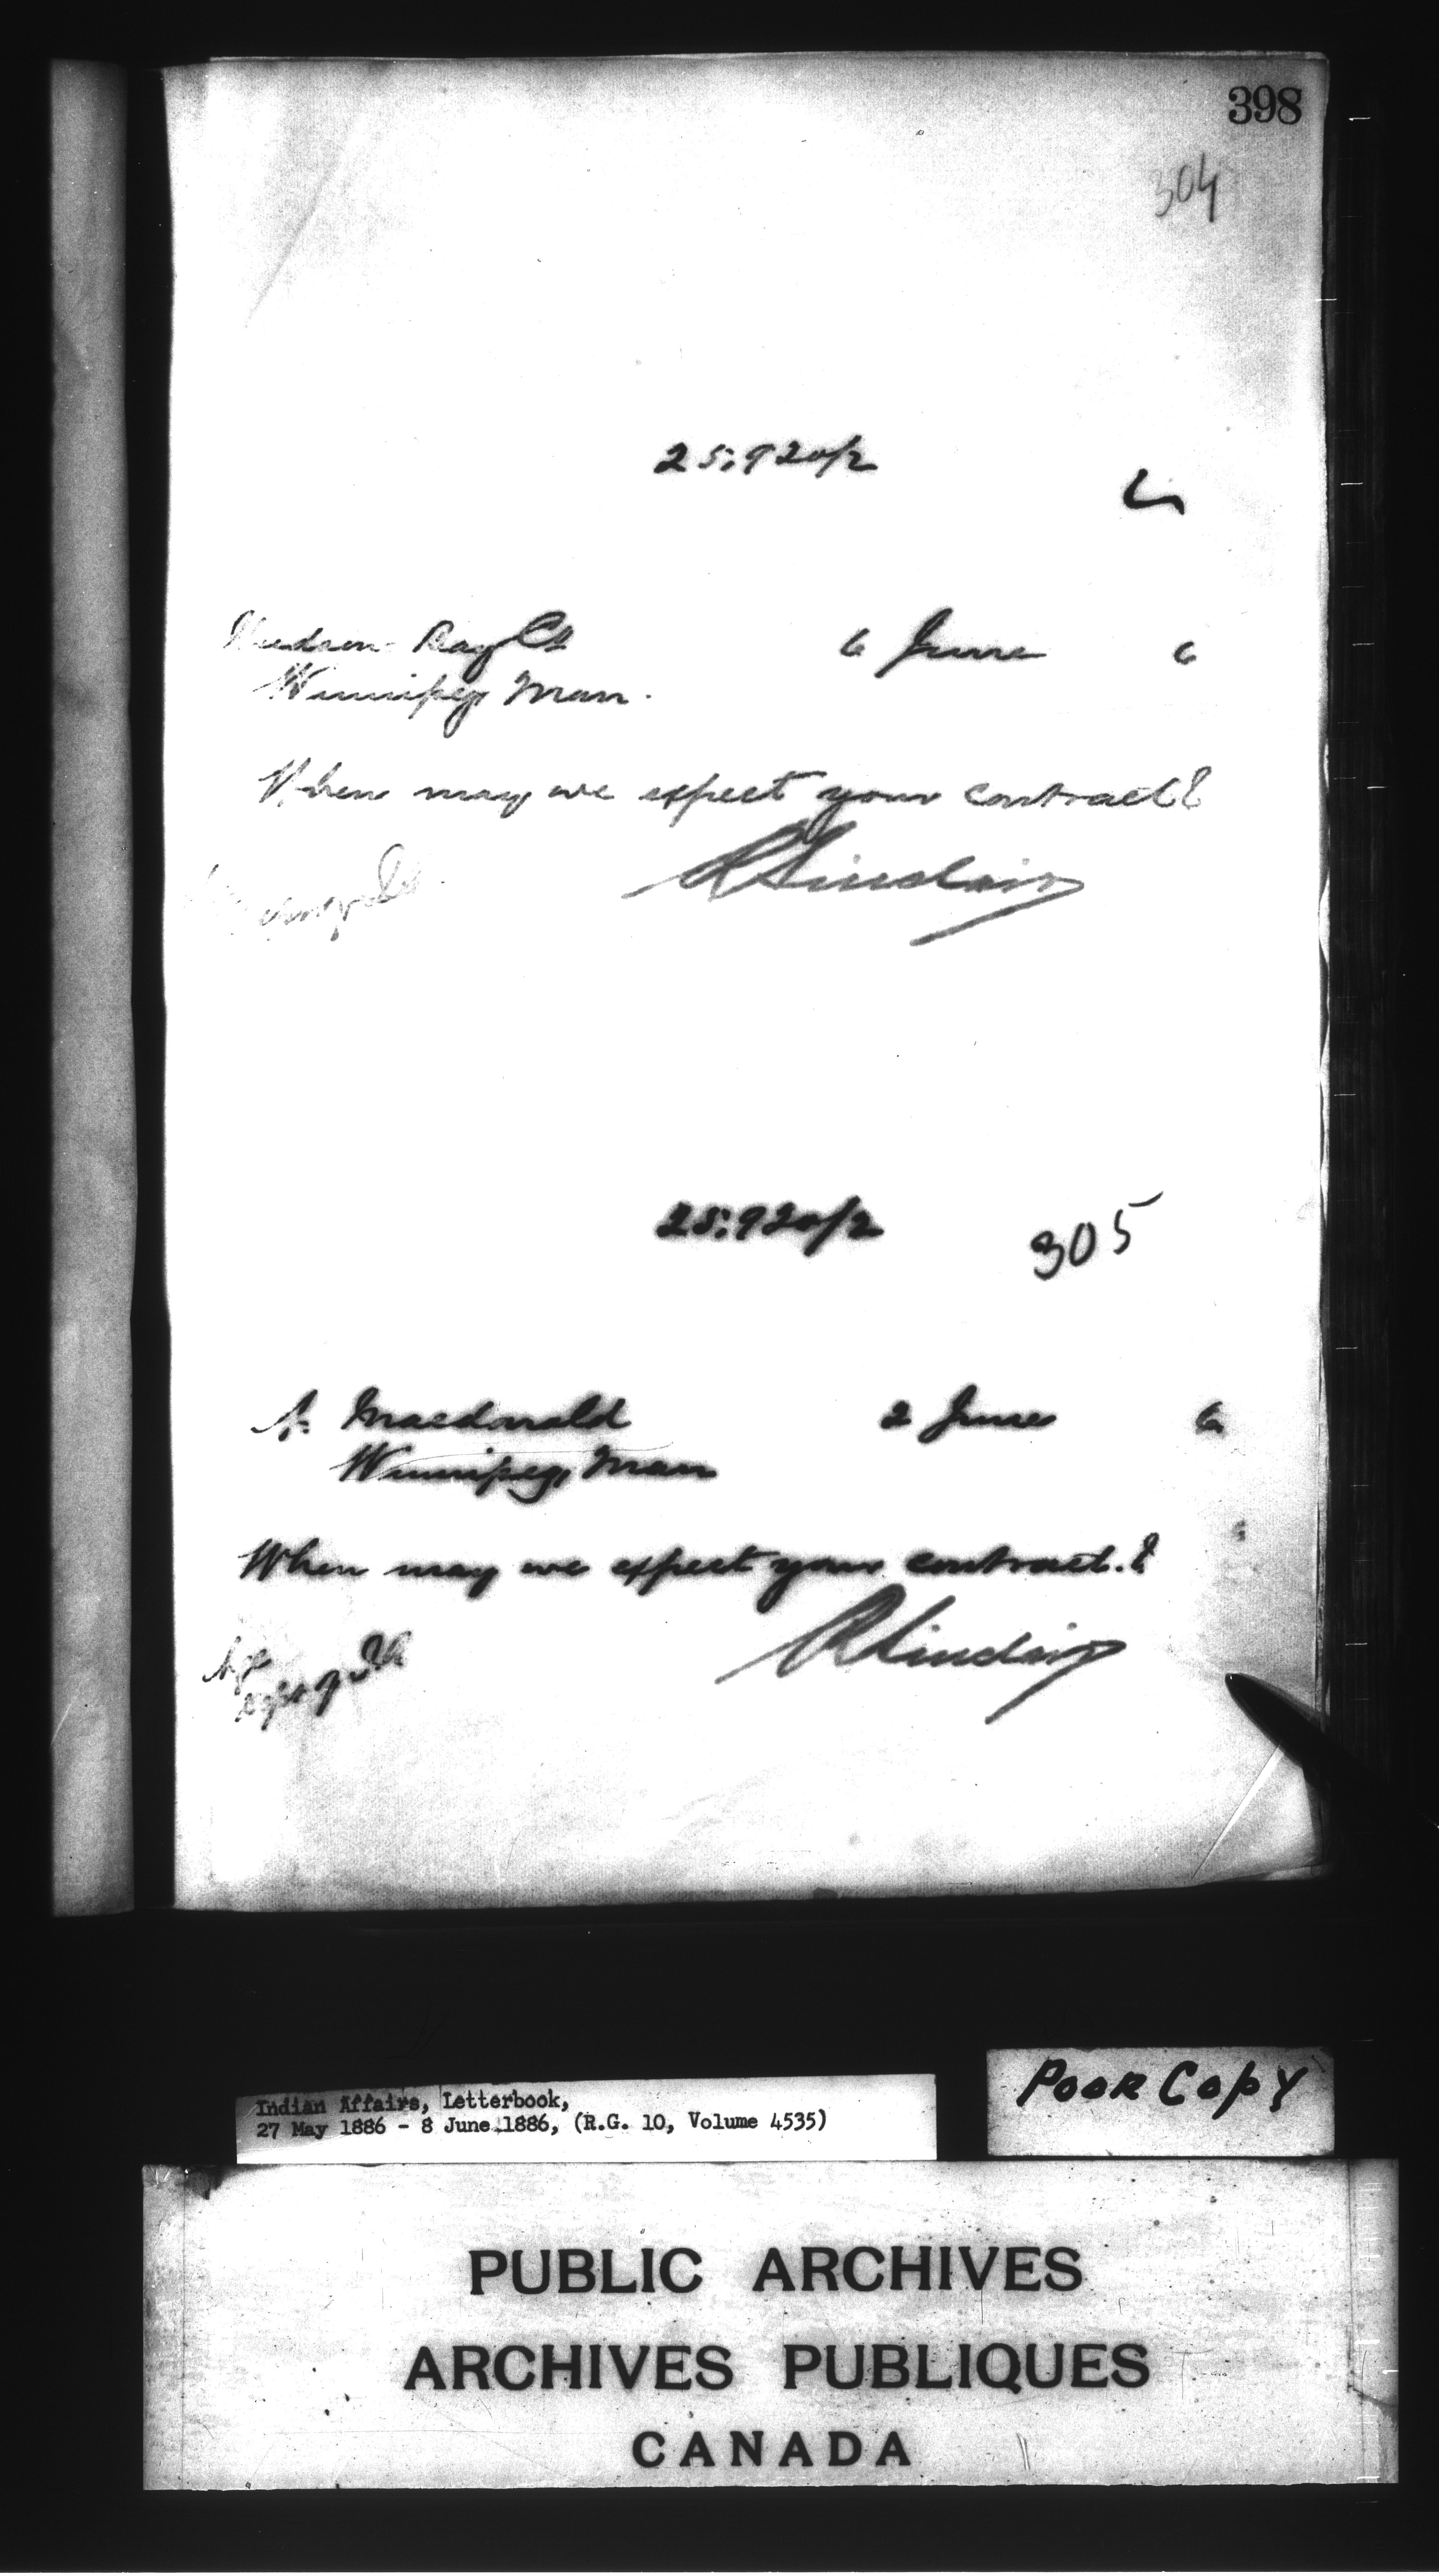 398
304
25,920/2
Hudson Bay Co
6 June 6
Winnipeg Man.
When may we expect your contract?
R Sinclair
25,920/2
305
A. Macdonald
2 June 6
Winnipeg, Man
When may we expect your contract.?
R Sinclair
Poor Copy
Indian Affairs, Letterbook,
27 May 1886 - 8 June 1886, (R.G. 10, Volume 4535)
PUBLIC ARCHIVES
ARCHIVES PUBLIQUES
CANADA